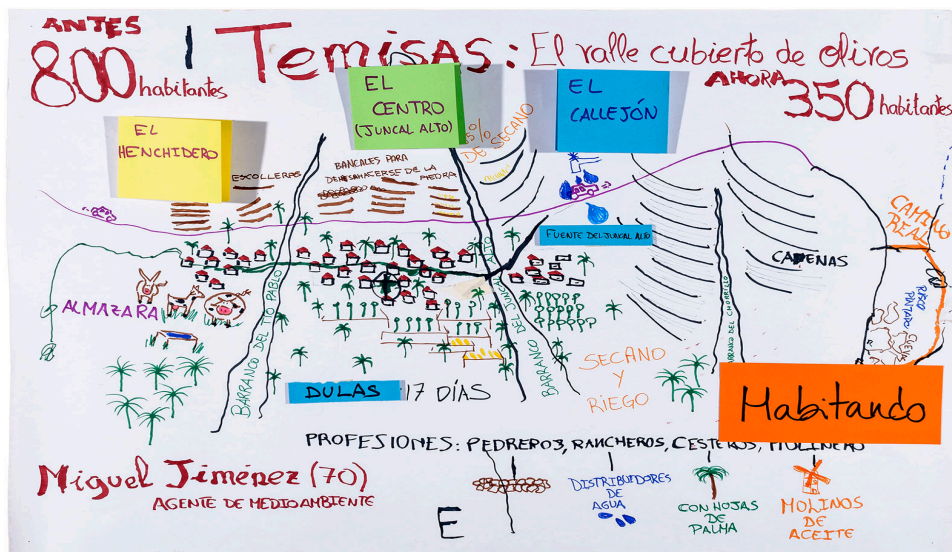 ANTES
800 habitantes
Temisas: El valle cubierto de olivos
AHORA
350 habitantes
EL
HENCHIDERO
EL
CENTRO
(JUNCAL ALTO)
EL
CALLEJÓN
5%
DE SECANO
ESCOLLERAS
BANCALES PARA
DE LA
PIEDRA
FUENTE DEL JUNCAL ALTO
CAMINO
REAL
CADENAS
ALMAZARA
BARRANCO DEL TÍO PABLO
BARRANCO DEL JUNCAL ALTO
DEL CHORRILLO
RISCO
PINTADO
CUEVAS
DULAS 17 DÍAS
SECANO
Y
RIEGO
Habitando
PROFESIONES: PEDREROS, RANCHEROS, CESTEROS, MOLINERO
DISTRIBUIDORES
DE
AGUA
CON HOJAS
DE
PALMA
MOLINOS
DE
ACEITE
Miguel Jiménez (70)
AGENTE DE MEDIOAMBIENTE
E